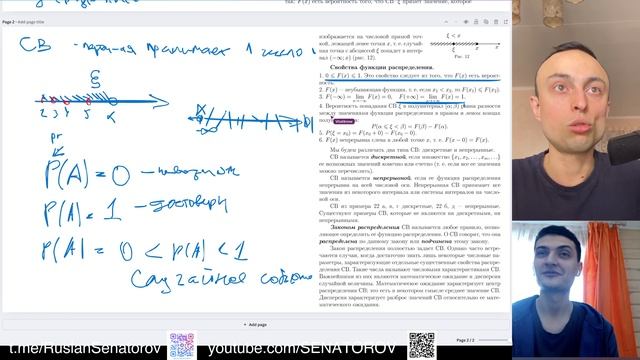 Page 2 - Add page title
СВ - принимает 1 число
ξ
2 3 4 5 6
P(A) = 0 - невозмож
P(A) = 1 - достоверн
P(A) = 0 < P(A) < 1
Случайное событие
изображается на числовой прямой точ-
кой, лежащей левее точки x, т. е. случай-
ная точка с абсциссой ξ попадет в интер-
вал (−∞; x) (рис. 12).
ξ < x
Рис. 12
Свойства функции распределения.
1. 0 ⩽ F(x) ⩽ 1. Это свойство следует из того, что F(x) есть вероят-
ность.
2. F(x) — неубывающая функция, т. е. если x₁ < x₂, то F(x₁) ⩽ F(x₂).
3. F(−∞) = lim F(x) = 0, F(+∞) = lim F(x) = 1.
4. Вероятность попадания СВ ξ в полуинтервал [α; β) равна разности
между значениями функции распределения в правом и левом концах
P(α ⩽ ξ < β) = F(β) − F(α).
5. P(ξ = x₀) = F(x₀ + 0) − F(x₀).
6. F(x) непрерывна слева в любой точке x, т. е. F(x − 0) = F(x).
Мы будем различать два типа СВ: дискретные и непрерывные.
СВ называется дискретной, если множество {x₁, x₂, ..., xₙ, ...}
ее возможных значений конечно или счетно (т. е. если все ее значения
можно перечислить).
СВ называется непрерывной, если ее функция распределения
непрерывна на всей числовой оси. Непрерывная СВ принимает все
значения из некоторого интервала или системы интервалов на число-
вой оси.
СВ из примера 22 а, в, г дискретные, 22 б, д — непрерывные.
Существуют примеры СВ, которые не являются ни дискретными, ни
непрерывными.
Законом распределения СВ называется любое правило, позво-
ляющее определить ее функцию распределения. О СВ говорят, что она
распределена по данному закону или подчинена этому закону.
Закон распределения полностью задает СВ. Однако часто встре-
чаются случаи, когда достаточно знать лишь некоторые числовые па-
раметры, характеризующие отдельные существенные свойства распре-
деления СВ. Такие числа называют числовыми характеристиками СВ.
Важнейшими из них являются математическое ожидание и дисперсия
случайной величины. Математическое ожидание характеризует центр
распределения СВ; это есть в некотором смысле среднее значение СВ.
Дисперсия характеризует разброс значений СВ относительно ее мате-
матического ожидания.
+ Add page
Page 2 / 2
t.me/RuslanSenatorov
youtube.com/SENATOROV